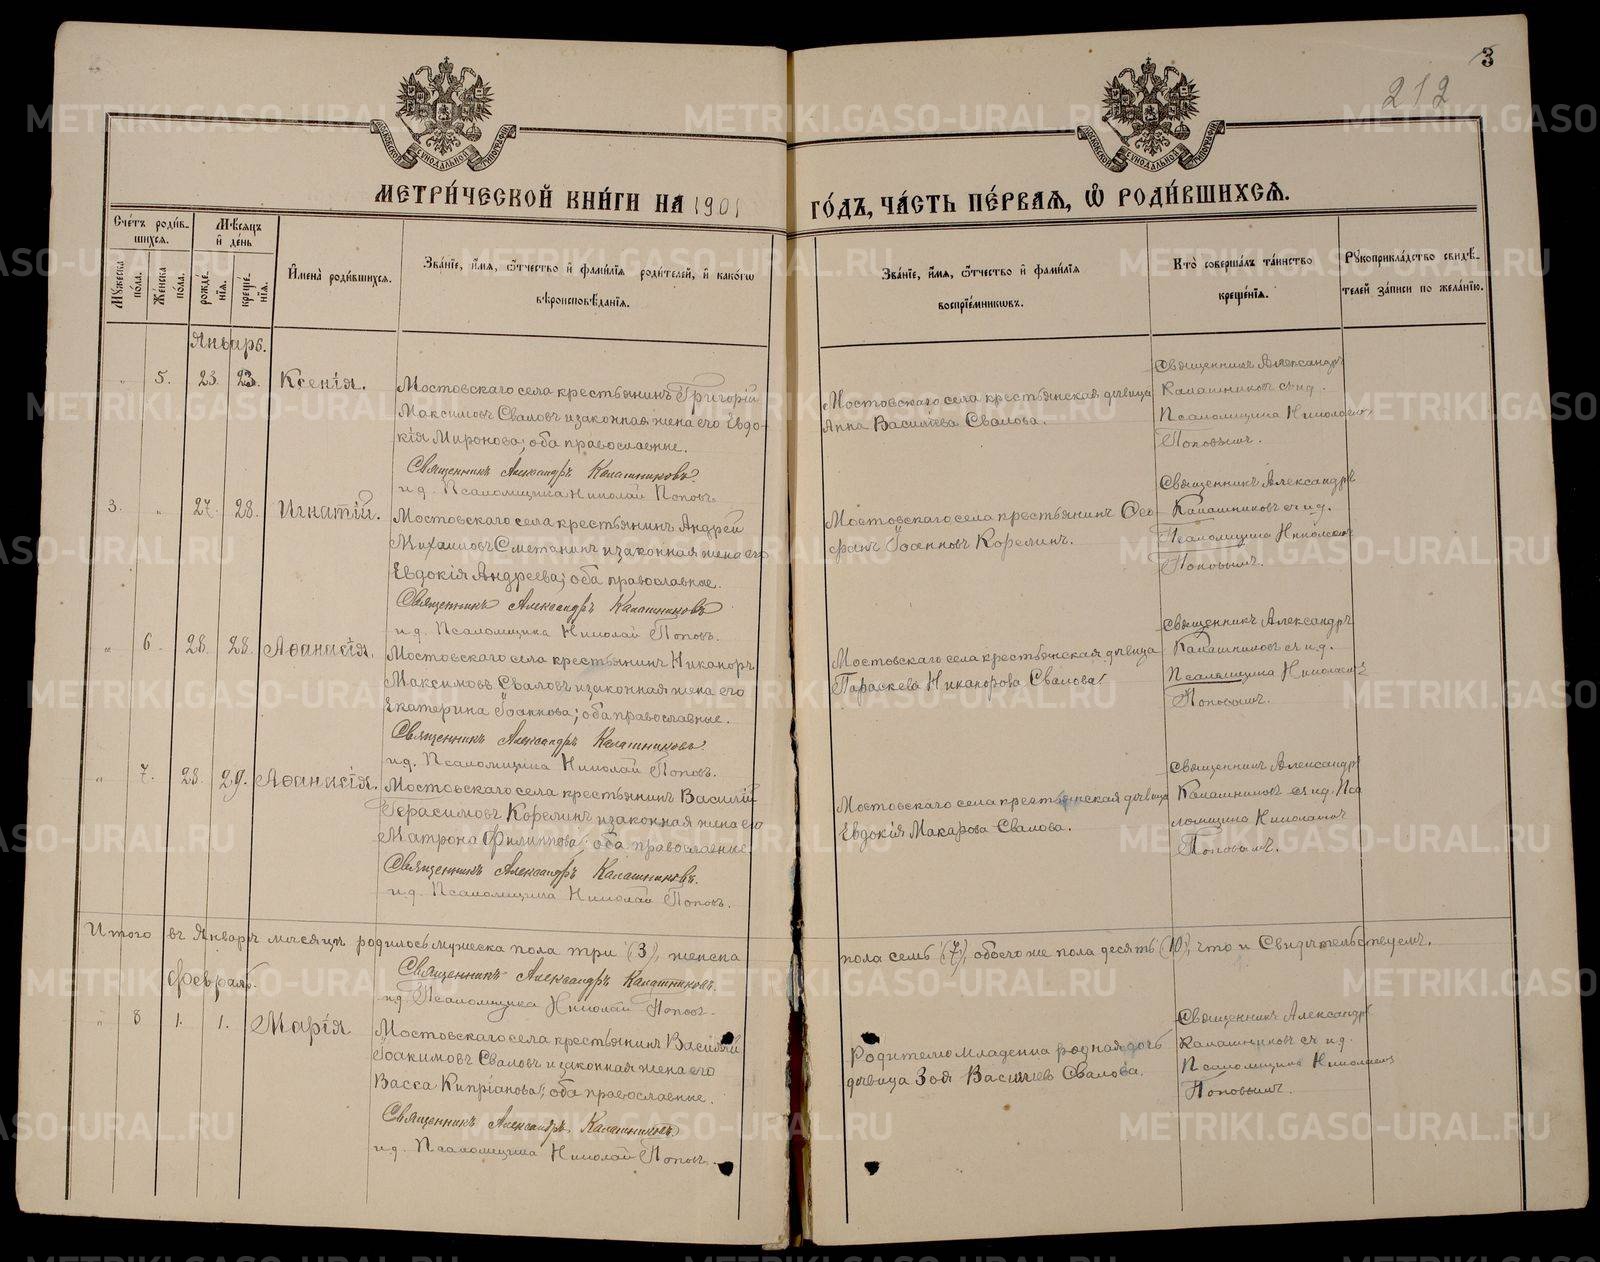 3
212
МОСКОВСКОЙ СѴНОДАЛЬНОЙ ТИПОГРАФІИ
МОСКОВСКОЙ СѴНОДАЛЬНОЙ ТИПОГРАФІИ
МЕТРИ́ЧЕСКОЙ КНИ́ГИ НА 1901 ГО́ДЪ, ЧА́СТЬ ПЕ́РВАѦ, Ѽ РОДИ́ВШИХСѦ.
Сче́тъ роди́в-
шихсѧ.
Мꙋ́жеска по́ла.
Же́нска по́ла.
Мѣ́сѧцъ
и҆ де́нь
рожде́нїѧ.
креще́нїѧ.
И҆мена̀ роди́вшихсѧ.
Зва́нїе, и҆́мѧ, ѻ҆́тчество и҆ фами́лїѧ роди́телей, и҆ како́гѡ
вѣроисповѣ́данїѧ.
Зва́нїе, и҆́мѧ, ѻ҆́тчество и҆ фами́лїѧ
воспрїе́мникѡвъ.
Кто̀ соверша́лъ та́инство
креще́нїѧ.
Рꙋкоприкла́дство свидѣ́-
телей за́писи по жела́нїю.
Январь.
„ 5. 23. 23. Ксенія.
Мостовскаго села крестьянинъ Григорій
Максимовъ Сваловъ и законная жена его Евдо-
кія Миронова; оба православные.
Священникъ Александръ Калашниковъ.
и.д. Псаломщика Николай Поповъ.
Мостовскаго села крестьянская дѣвица
Анна Василіева Свалова.
Священникъ Александръ
Калашниковъ съ и.д.
Псаломщика Николаемъ
Поповымъ.
3. „ 27. 28. Игнатій.
Мостовскаго села крестьянинъ Андрей
Михаиловъ Сметанинъ и законная жена его
Евдокія Андреева; оба православные.
Священникъ Александръ Калашниковъ
и.д. Псаломщика Николай Поповъ.
Мостовскаго села крестьянинъ Ѳео
фанъ Іоанновъ Корелинъ.
Священникъ Александръ
Калашниковъ съ и.д.
Псаломщика Николаемъ
Поповымъ.
„ 6. 28. 28. Аѳанасія.
Мостовскаго села крестьянинъ Никаноръ
Максимовъ Сваловъ и законная жена его
Екатерина Іоаннова; оба православные.
Священникъ Александръ Калашниковъ.
и.д. Псаломщика Николай Поповъ.
Мостовскаго села крестьянская дѣвица
Параскева Никанорова Свалова.
Священникъ Александръ
Калашниковъ съ и.д.
Псаломщика Николаемъ
Поповымъ.
„ 7. 28. 29. Аѳанасія.
Мостовскаго села крестьянинъ Василій
Герасимовъ Корелинъ и законная жена его
Матрона Филиппова; оба православные.
Священникъ Александръ Калашниковъ.
и.д. Псаломщика Николай Поповъ.
Мостовскаго села крестьянская дѣвица
Евдокія Макарова Свалова.
Священникъ Александръ
Калашниковъ съ и.д. Пса
ломщика Николаемъ
Поповымъ.
Итого въ Январѣ мѣсяцѣ родилось мужеска пола три (3), женска
пола семь (7), обоего же пола десять (10), что и Свидѣтельствуемъ.
Священникъ Александръ Калашниковъ.
и.д. Псаломщика Николай Поповъ.
Февраль.
„ 8 1. 1. Марія
Мостовскаго села крестьянинъ Василій
Іоакимовъ Сваловъ и законная жена его
Васса Кипріанова; оба православные.
Священникъ Александръ Калашниковъ.
и.д. Псаломщика Николай Поповъ.
Родителю младенца родная дочь
дѣвица Зоя Васильев Свалова.
Священникъ Александръ
Калашниковъ съ и.д.
Псаломщика Николаемъ
Поповымъ.
METRIKI.GASO-URAL.RU